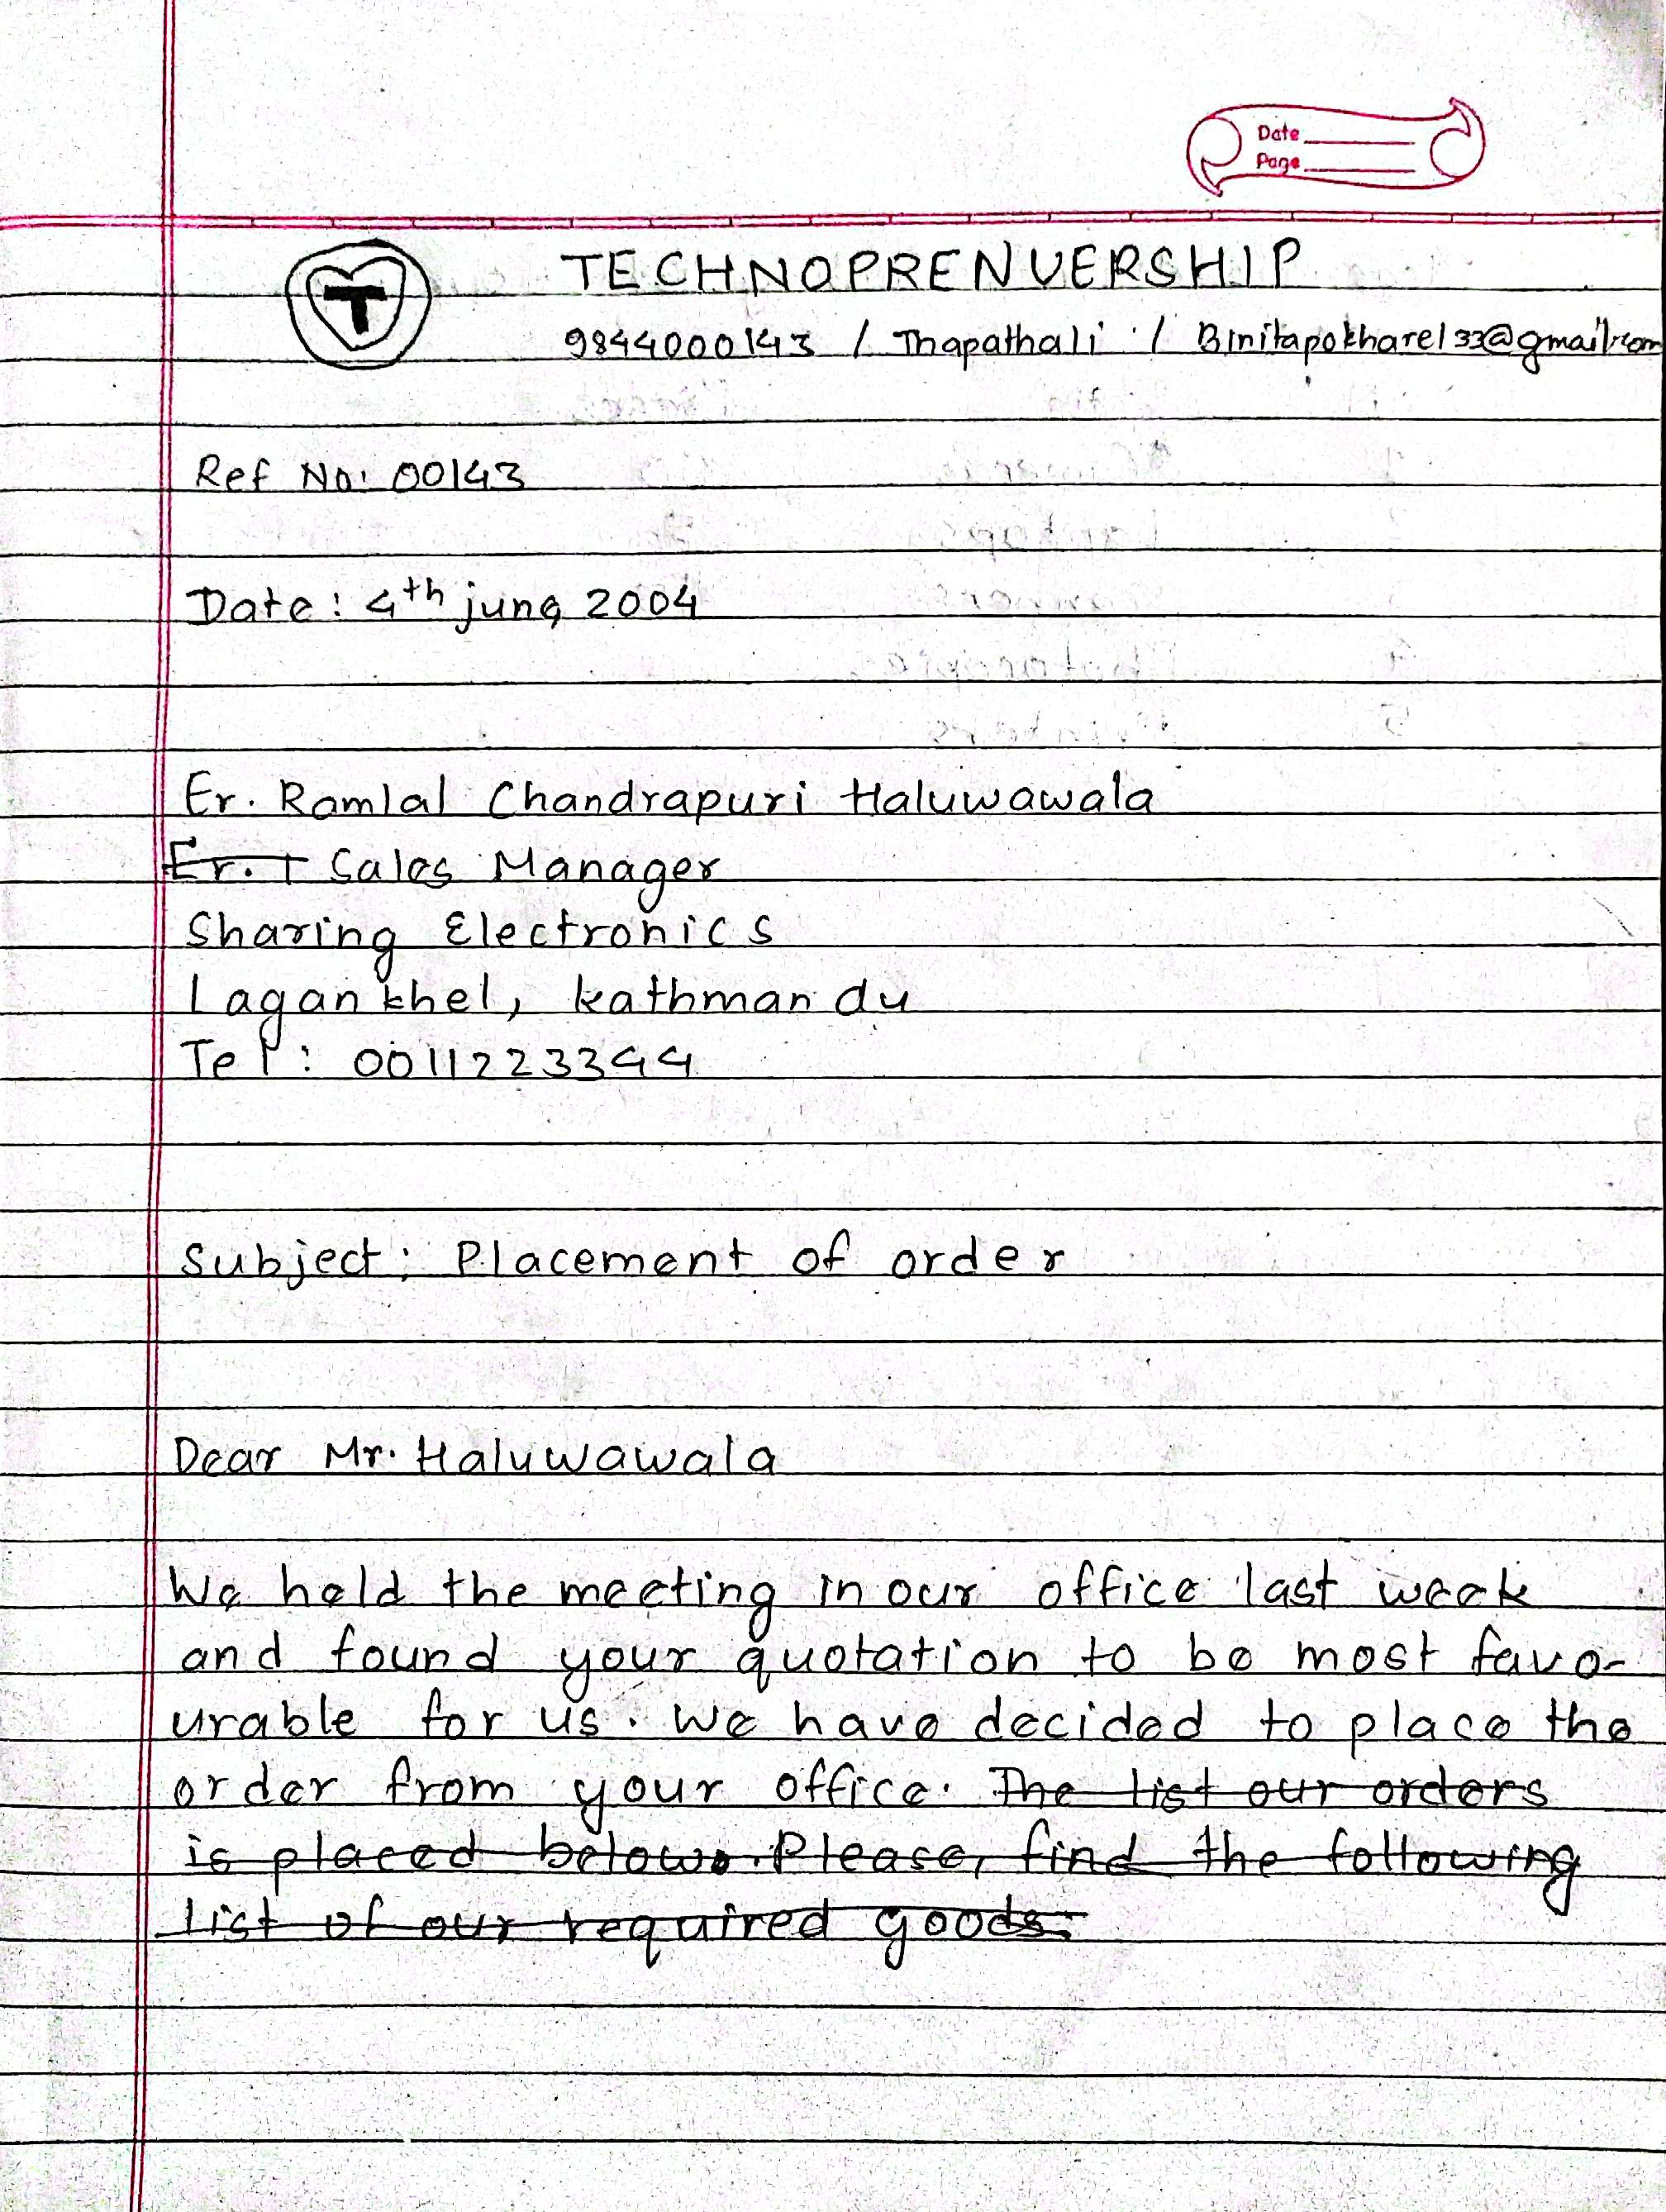 Date
Page
T
TECHNOPRENUERSHIP
9844000143 / Thapathali / Binitapokharel33@gmail.com
Ref No: 00143
Date: 4th june, 2004
Er. Ramlal Chandrapuri Haluwawala
Er. Sales Manager
Sharing Electronics
Lagankhel, kathmandu
Tel: 0011223344
Subject: Placement of order
Dear Mr. Haluwawala
We held the meeting in our office last week
and found your quotation to be most favo-
urable for us. We have decided to place the
order from your office. The list our orders
is placed below. Please, find the following
list of our required goods.